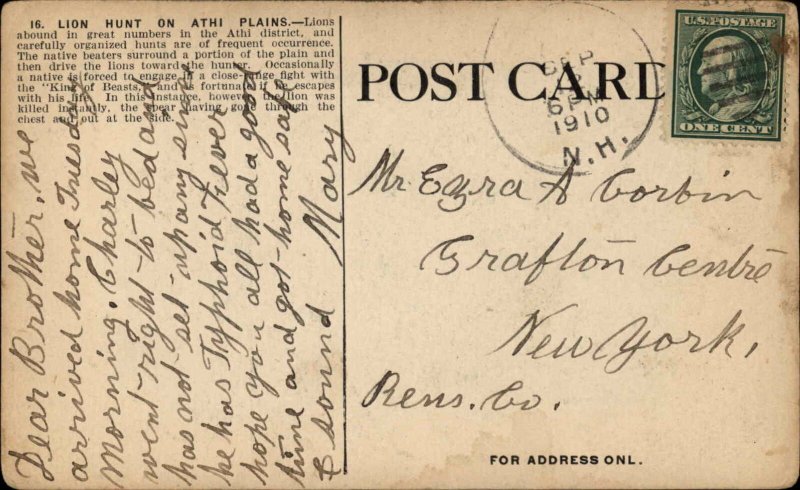 16. LION HUNT ON ATHI PLAINS.—Lions
abound in great numbers in the Athi district, and
carefully organized hunts are of frequent occurrence.
The native beaters surround a portion of the plain and
then drive the lions toward the hunter. Occasionally
a native is forced to engage in a close-range fight with
the "King of Beasts," and fortunate if he escapes
with his life. In this instance, however the lion was
killed instantly, the spear having gone through the
chest and out at the side.
Dear Brother, we
arrived home Tuesday
Morning. Charley
went right to bed and
has not set up any since
he has Typhoid Fever
hope you all had a good
time and got home safe
& sound Mary
POST CARD
SEP
6 PM
1910
N.H.
U.S. POSTAGE
ONE CENT
Mr Ezra A Corbin
Grafton Centre
New York,
Rens. Co.
FOR ADDRESS ONL.